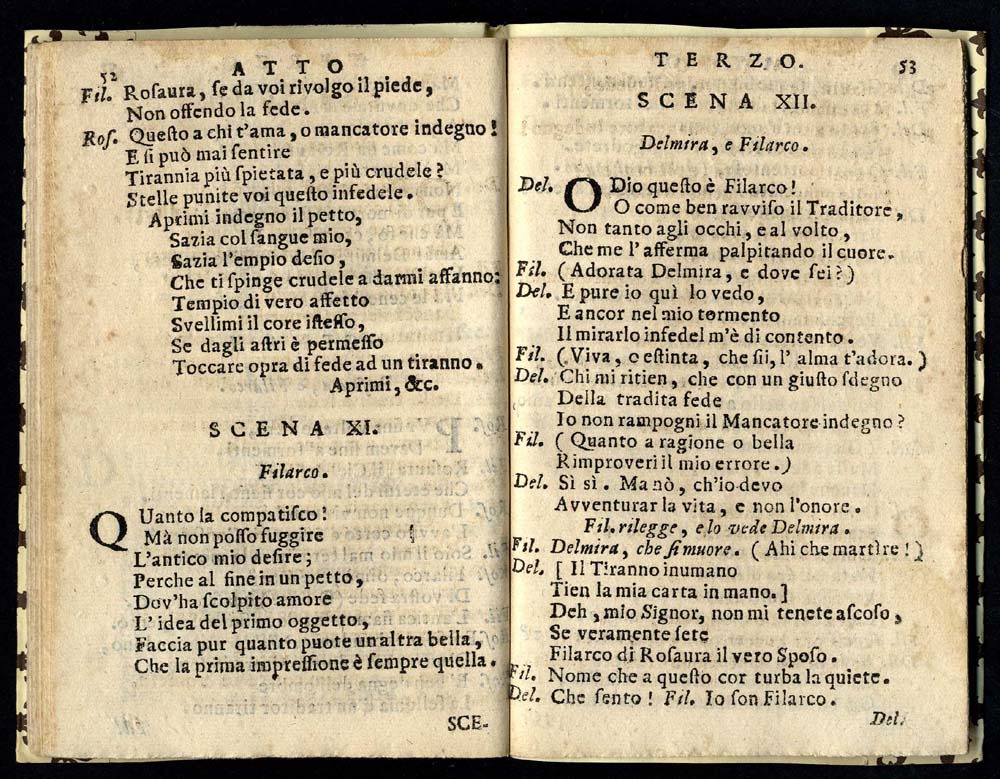 52
ATTO
Fil. Rosaura, se da voi rivolgo il piede,
Non offendo la fede.
Ros. Questo a chi t'ama, o mancatore indegno!
E si può mai sentire
Tirannia più spietata, e più crudele?
Stelle punite voi questo infedele.
Aprimi indegno il petto,
Sazia col sangue mio,
Sazia l'empio desio,
Che ti spinge crudele a darmi affanno:
Tempio di vero affetto
Svellimi il core istesso,
Se dagli astri è permesso
Toccare opra di fede ad un tiranno.
Aprimi, &c.
SCENA XI.
Filarco.
QUanto la compatisco!
Mà non posso fuggire
L'antico mio desire;
Perche al fine in un petto,
Dov'ha scolpito amore
L'idea del primo oggetto,
Faccia pur quanto puote un altra bella,
Che la prima impressione è sempre quella.
SCE-
TERZO.
53
SCENA XII.
Delmira, e Filarco.
Del. ODio questo è Filarco!
O come ben ravviso il Traditore,
Non tanto agli occhi, e al volto,
Che me l'afferma palpitando il cuore.
Fil. (Adorata Delmira, e dove sei?)
Del. E pure io quì lo vedo,
E ancor nel mio tormento
Il mirarlo infedel m'è di contento.
Fil. (Viva, o estinta, che sii, l'alma t'adora.)
Del. Chi mi ritien, che con un giusto sdegno
Della tradita fede
Io non rampogni il Mancatore indegno?
Fil. (Quanto a ragione o bella
Rimproveri il mio errore.)
Del. Sì sì. Ma nò, ch'io devo
Avventurar la vita, e non l'onore.
Fil. rilegge, e lo vede Delmira.
Fil. Delmira, che si muore. (Ahi che martìre!)
Del. [Il Tiranno inumano
Tien la mia carta in mano.]
Deh, mio Signor, non mi tenete ascoso,
Se veramente sete
Filarco di Rosaura il vero Sposo.
Fil. Nome che a questo cor turba la quiete.
Del. Che sento! Fil. Io son Filarco.
Del.